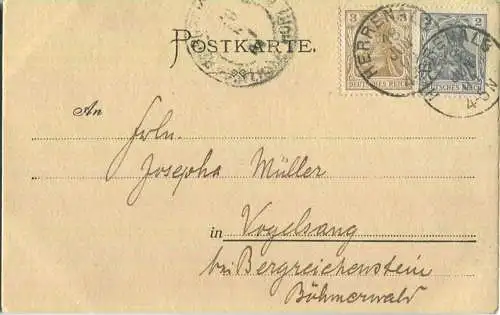 POSTKARTE.
3
DEUTSCHES REICH
2
DEUTSCHES REICH
HERRENALB
HERRENALB
4-5 N
An
Frln.
Josepha Müller
in Vogelsang
bei Bergreichenstein
Böhmerwald